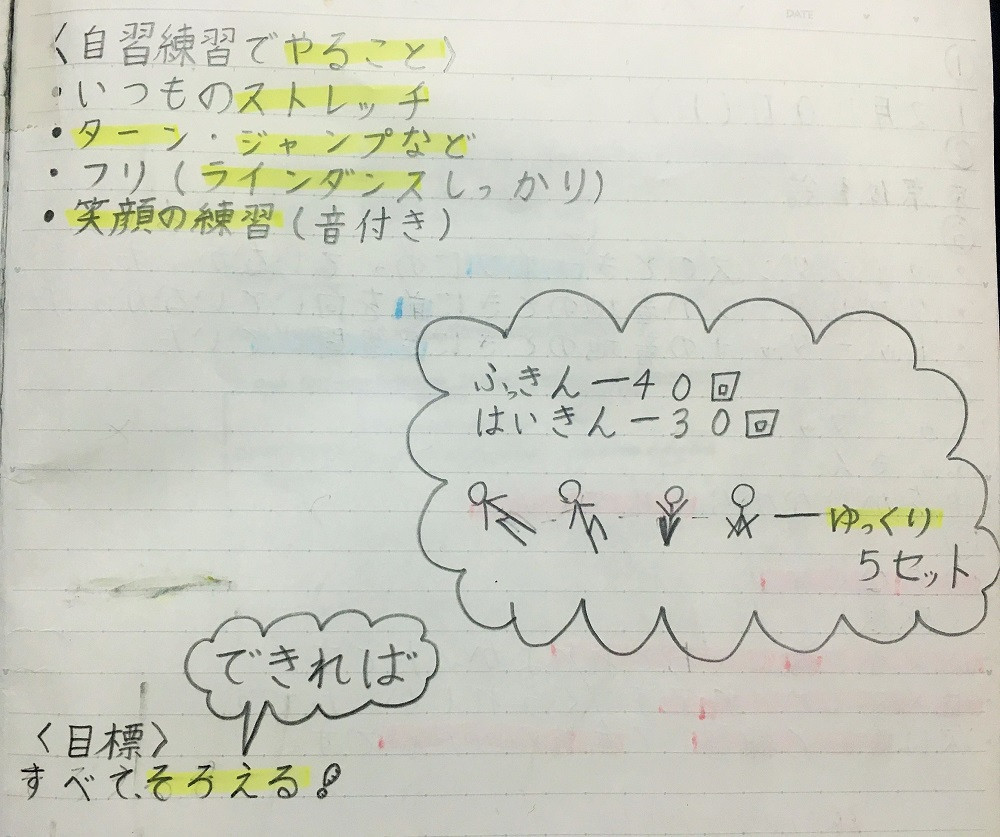 DATE
〈自習練習でやること〉
・いつものストレッチ
・ターン・ジャンプなど
・フリ(ラインダンスしっかり)
・笑顔の練習(音付き)
ふっきんー40回
はいきんー30回
ーゆっくり
5セット
できれば
〈目標〉
すべて、そろえる!